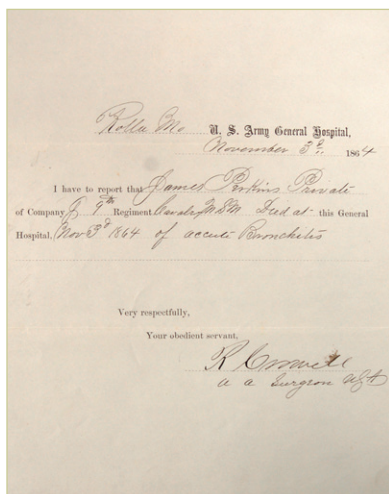 Rolla Mo U. S. Army General Hospital,
November 3d. 1864
I have to report that James Perkins Private
of Company J 9th Regiment Cavalry M.S.M. Died at this General
Hospital, Nov 3d 1864 of accute Bronchetis
Very respectfully,
Your obedient servant,
R
a a Surgeon